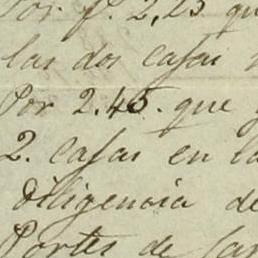 Por p. 2,25 qu
las dos casas
Por 2.45. que
2. Casas en la
diligencia de
Portes de Car